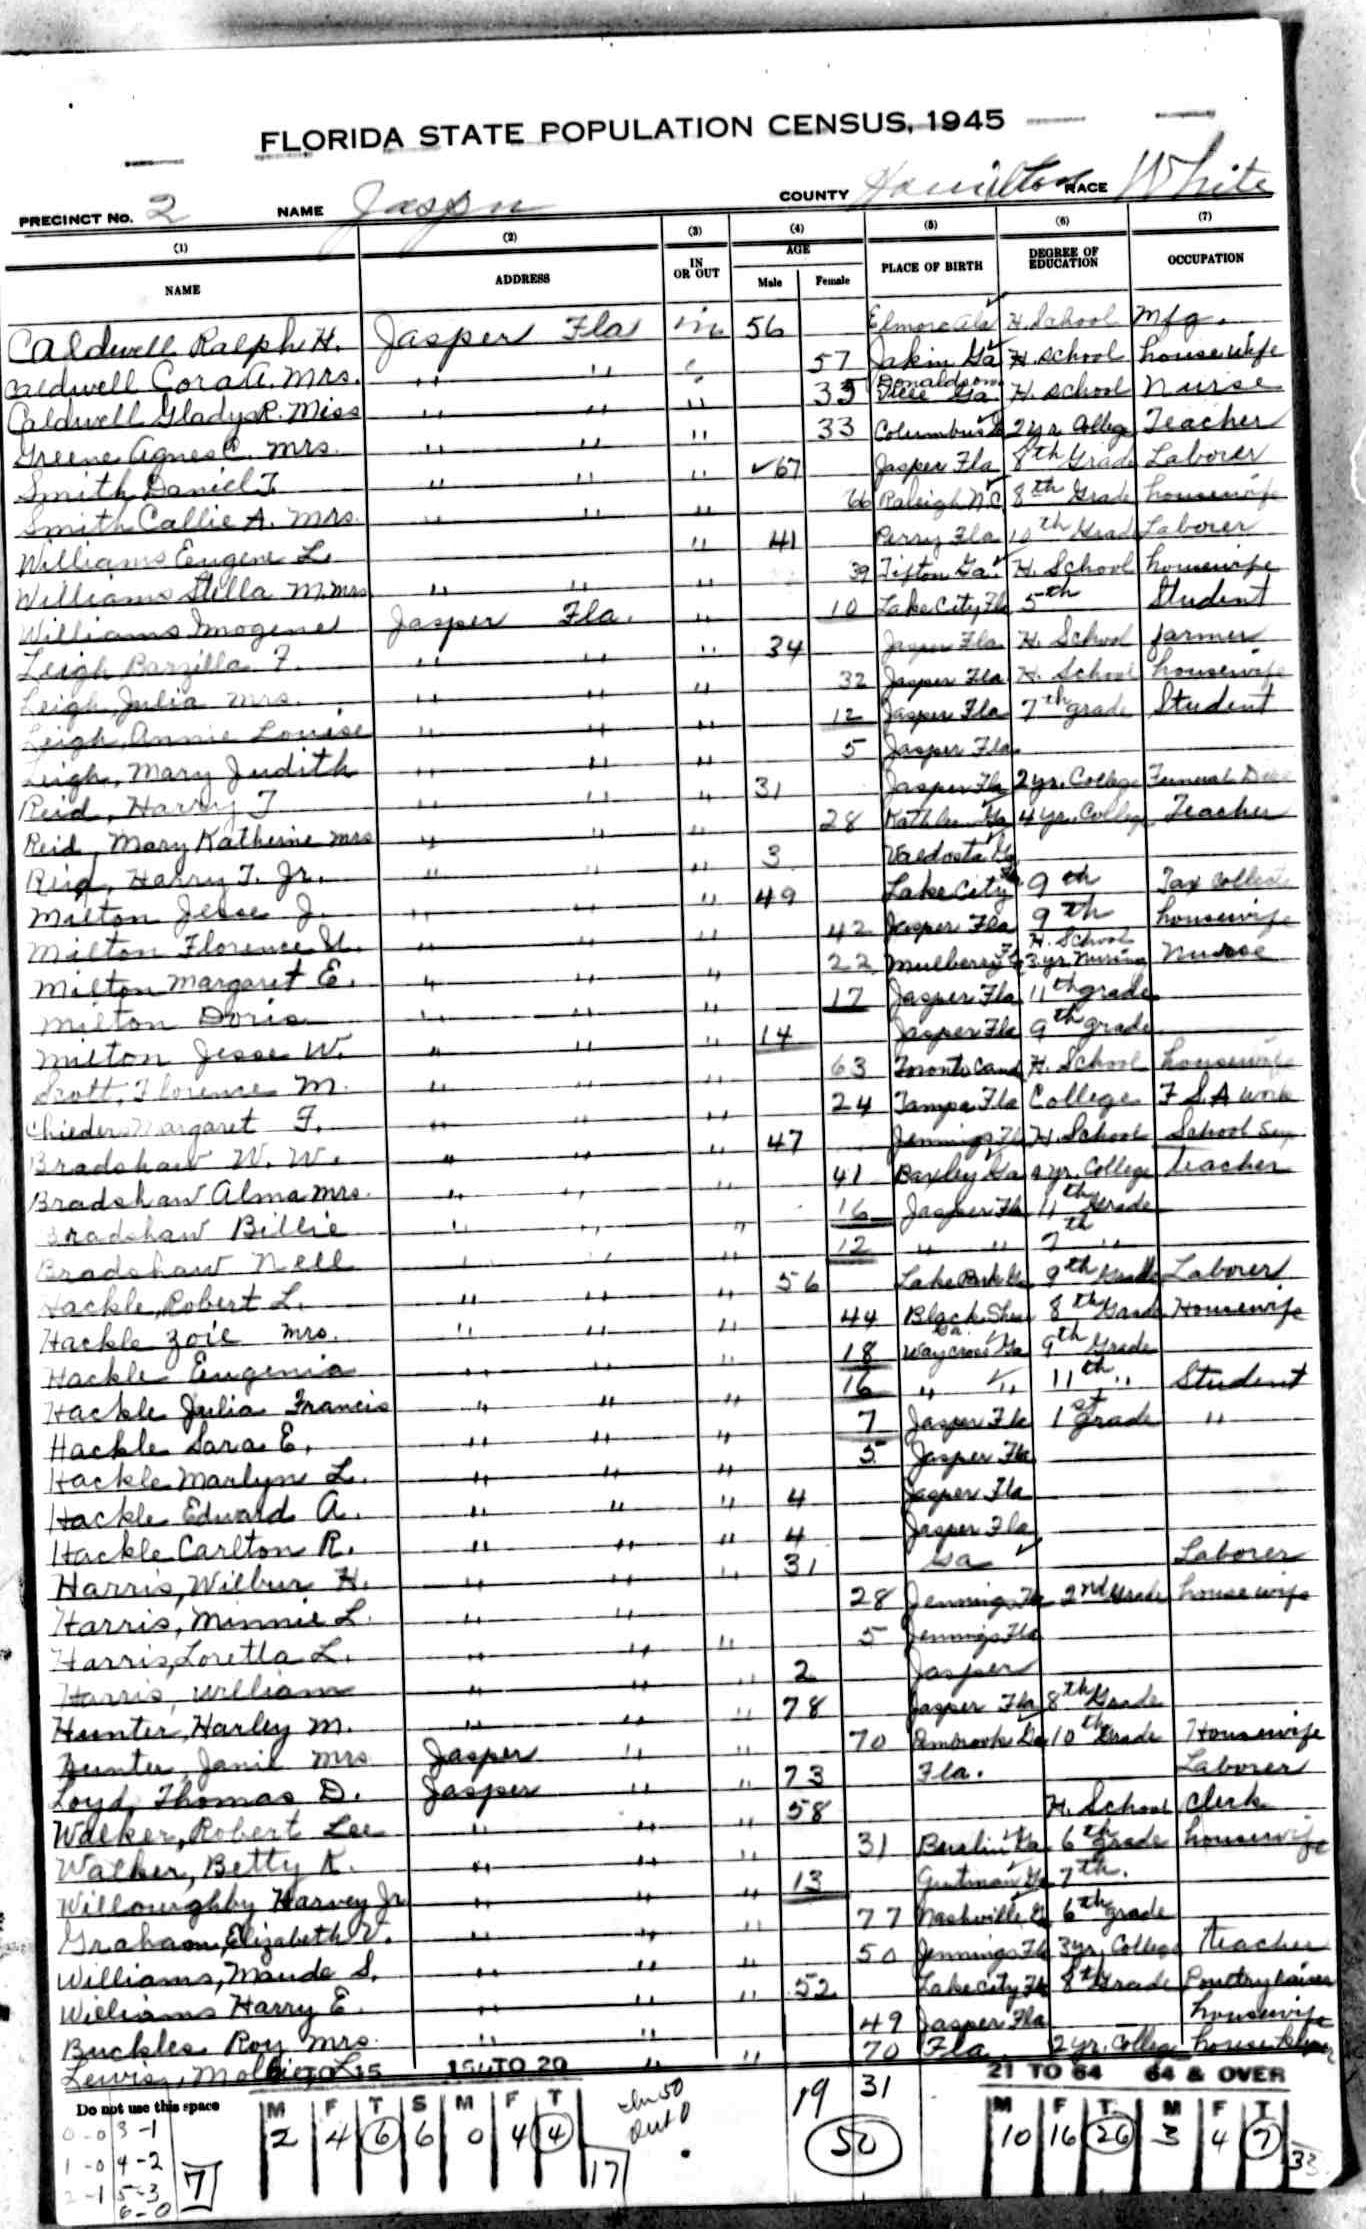 FLORIDA STATE POPULATION CENSUS, 1945
PRECINCT No. 2 NAME Jasper COUNTY Hamilton RACE White
(1) (2) (3) (4) (5) (6) (7)
NAME ADDRESS IN OR OUT AGE Male Female PLACE OF BIRTH DEGREE OF EDUCATION OCCUPATION
Caldwell Ralph H. Jasper Fla in 56 Elmore Ala H. School Mfg.
Caldwell Cora A. Mrs. " " " 57 Jakin Ga H. School housewife
Caldwell Gladys R. Miss " " " 35 Donaldsonville Ga. H. School Nurse
Greene Agnes C. Mrs. " " " 33 Columbus 2 yr. College Teacher
Smith Daniel T. " " " 67 Jasper Fla 8th Grade Laborer
Smith Callie A. Mrs. " " " 66 Raleigh N.C. 8th Grade housewife
Williams Eugene L. " 41 Perry Fla 10th Grade Laborer
Williams Stella M. Mrs " " " 39 Tifton Ga. H. School housewife
Williams Imogene Jasper Fla. " 10 Lake City Fla 5th Student
Leigh Barzilla F. " " " 34 Jasper Fla H. School farmer
Leigh, Julia Mrs. " " " 32 Jasper Fla H. School housewife
Leigh, Annie Louise " " " 12 Jasper Fla 7th grade Student
Leigh, Mary Judith " " " 5 Jasper Fla
Reid, Harry T " " " 31 Jasper Fla 2 yr. College Funeral
Reid, Mary Katherine Mrs " " " 28 Ga 4 yr. College Teacher
Reid, Harry T. Jr. " " " 3 Valdosta Ga
Milton Jesse J. " " " 49 Lake City Fla 9th Tax Collector
Milton Florence " " " 42 Jasper Fla 9th housewife
Milton Margaret E. " " " 22 Mulberry Fla H. School 3 yr. Nursing Nurse
Milton Doris " " " 17 Jasper Fla 11th grade
Milton Jesse W. " " " 14 Jasper Fla 9th grade
Scott, Florence M. " " " 63 Toronto Cand H. School housewife
Margaret F. " " " 24 Tampa Fla College F S A work
Bradshaw W. W. " " " 47 Jennings Fla H. School School Sup
Bradshaw Alma Mrs. " " " 41 Baxley Ga yr. College teacher
Bradshaw Billie " " " 16 Jasper Fla 11th Grade
Bradshaw Nell " " " 12 " " 7th "
Hackle, Robert L. " " " 56 Lake Park Ga 9th Grade Laborer
Hackle Zoie Mrs. " " " 44 Black Shear Ga. 8th Grade Housewife
Hackle Eugenia " " " 18 Waycross Ga 9th Grade
Hackle Julia Francis " " " 16 " " 11th " Student
Hackle Sara E. " " " 7 Jasper Fla 1st grade "
Hackle Marlyn L. " " " 5 Jasper Fla
Hackle Edward A. " " " 4 Jasper Fla
Hackle Carlton R. " " " 4 Jasper Fla
Harris, Wilbur H. " " " 31 Ga Laborer
Harris, Minnie L. " " 28 Jennings Fla 2nd Grade housewife
Harris, Loretta L. " " " 5 Jennings Fla
Harris, William " " " 2 Jasper
Hunter, Harley M. " " " 78 Jasper Fla 8th Grade
Hunter, Janie Mrs Jasper " " 70 Pembrook Ga 10th Grade Housewife
Loyd, Thomas D. Jasper " " 73 Fla. Laborer
Walker, Robert Lee " " " 58 H. School Clerk
Walker, Betty K. " " " 31 Berlin Ga 6th Grade housewife
Willoughby Harvey Jr " " " 13 Ga 7th.
Graham, Elizabeth V. " " " 77 Nashville Ga 6th grade
Williams, Maude S. " " " 50 Jennings Fla 3 yr. College teacher
Williams Harry E. " " " 52 Lake City Fla 8th Grade Poultry raiser
Buckles Roy Mrs. " " 49 Jasper Fla housewife
Lewis, Mollie L. " " 70 Fla. 2 yr. College house keeper
15 15 TO 20 21 TO 64 64 & OVER
Do not use this space M F T S M F T M F T M F T
2 4 6 6 0 4 4 17 In 50 Out 0 19 31 50 10 16 26 3 4 7 33
0-0 3-1
1-0 4-2
2-1 5-3 7
6-0